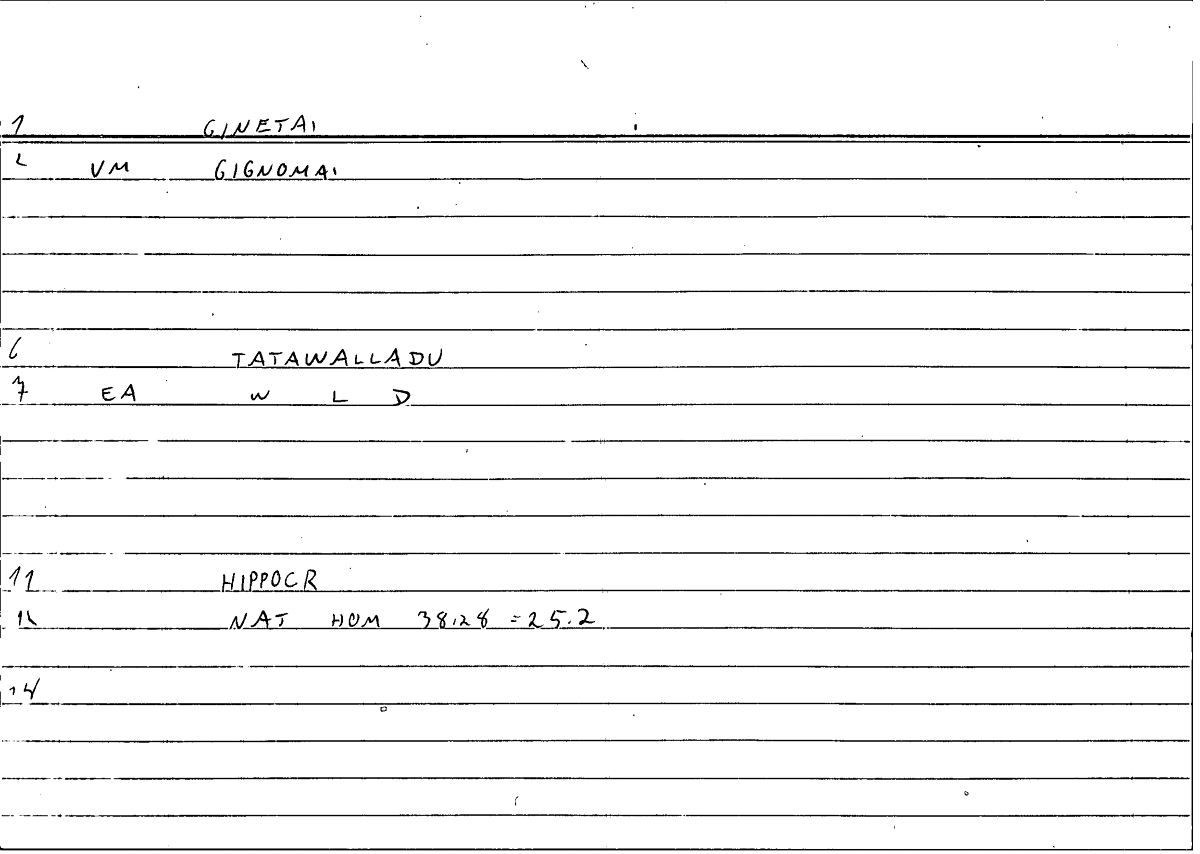 1 GINETAI
2 VM GIGNOMAI
6 TATAWALLADU
7 EA W L D
11 HIPPOCR
12 NAT HOM 38.28 = 25.2
14